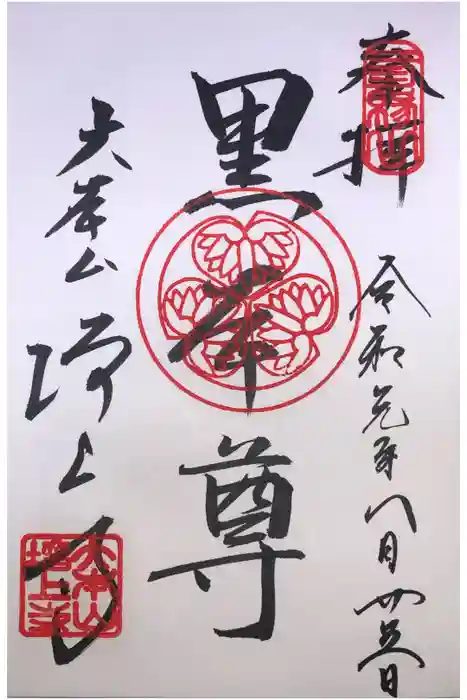 奉拝
令和元年八月廿五日
黒本尊
大本山 増上寺
大本山
増上寺